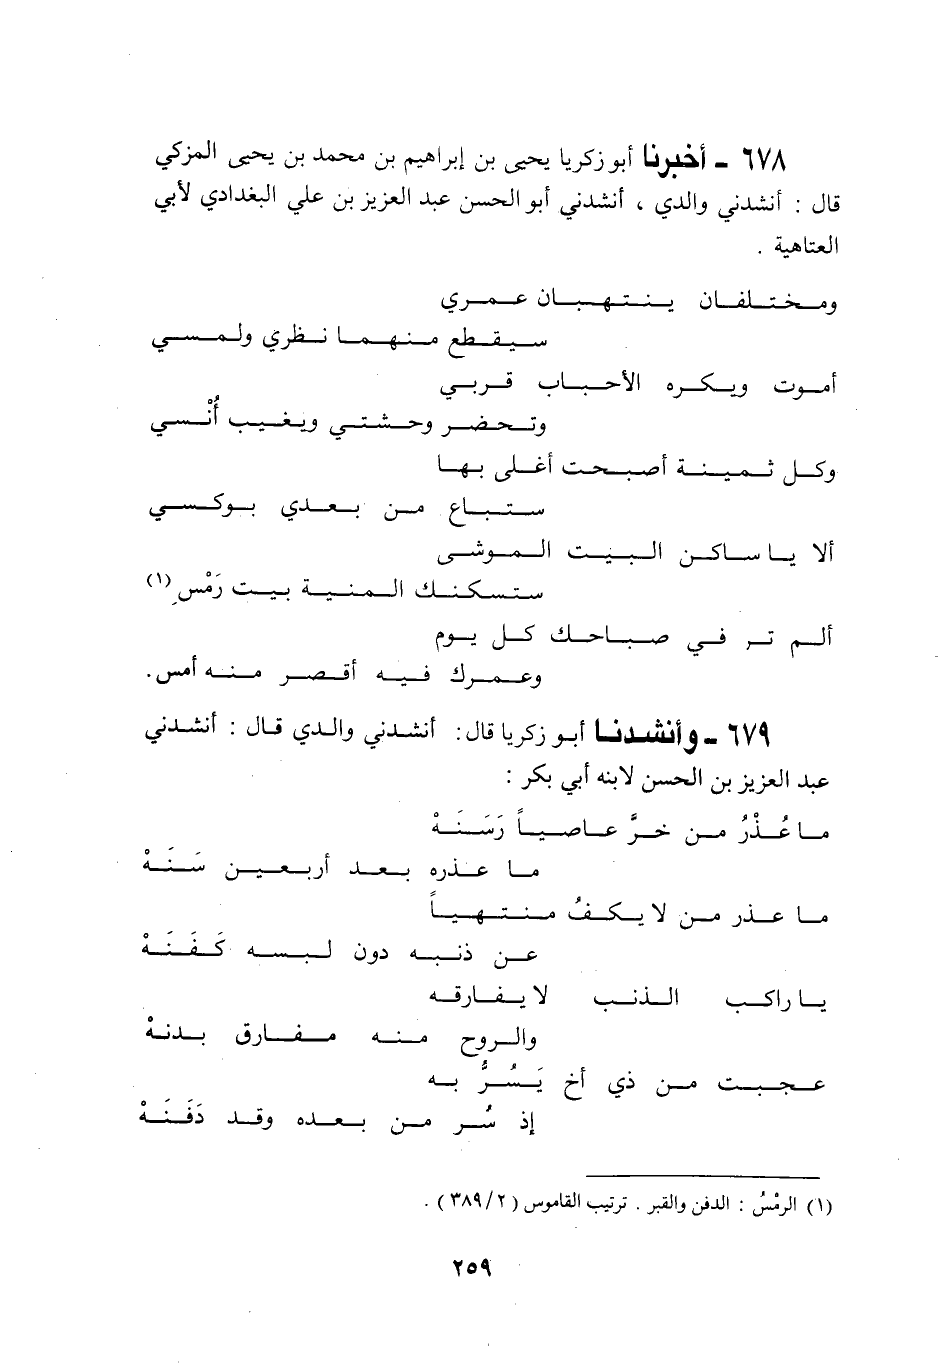 ٦٧٨ - أخبرنا أبو زكريا يحيى بن إبراهيم بن محمد بن يحيى المزكي
قال : أنشدني والدي ، أنشدني أبو الحسن عبد العزيز بن علي البغدادي لأبي
العتاهية .
ومختلفان ينتهبان عمري
سيقطع منهما نظري ولمسي
أموت ويكره الأحباب قربي
وتحضر وحشتي ويغيب أُنْسي
وكل ثمينة أصبحت أغلى بها
ستباع من بعدي بوكسي
ألا يا ساكن البيت الموشى
ستسكنك المنية بيت رَمْسِ (١)
ألم تر في صباحك كل يوم
وعمرك فيه أقصر منه أمس .
٦٧٩ - وأنشدنا أبو زكريا قال : أنشدني والدي قال : أنشدني
عبد العزيز بن الحسن لابنه أبي بكر :
ما عُذْرُ من خرَّ عاصياً رَسَنَهْ
ما عذره بعد أربعين سَنَهْ
ما عذر من لا يكفُ منتهياً
عن ذنبه دون لبسه كَفَنَهْ
يا راكب الذنب لا يفارقه
والروح منه مفارق بدنهْ
عجبت من ذي أخ يَسُرُّ به
إذ سُر من بعده وقد دَفَنَهْ
(١) الرمْسُ : الدفن والقبر . ترتيب القاموس (٢/ ٣٨٩) .
٢٥٩